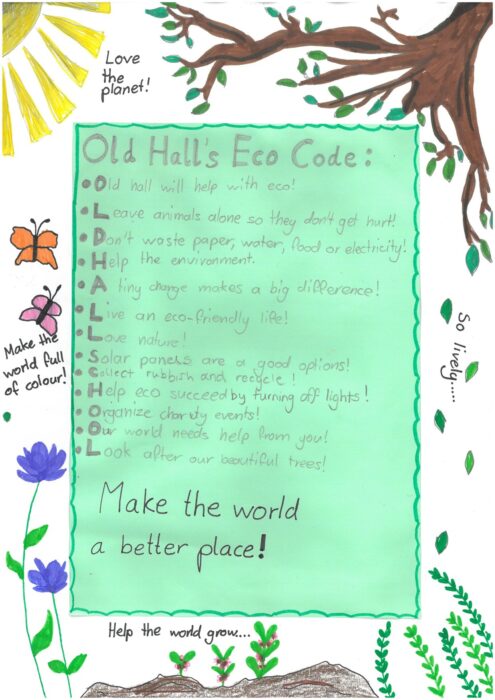 Love
the
planet!
Old Hall's Eco Code:
Old hall will help with eco!
Leave animals alone so they don't get hurt!
Don't waste paper, water, food or electricity!
Help the environment.
A tiny change makes a big difference!
Live an eco-friendly life!
Love nature!
Solar panels are a good options!
Collect rubbish and recycle!
Help eco succeed by turning off lights!
Organize charity events!
Our world needs help from you!
Look after our beautiful trees!
Make the world
a better place!
Make the
world full
of colour!
So lively....
Help the world grow....